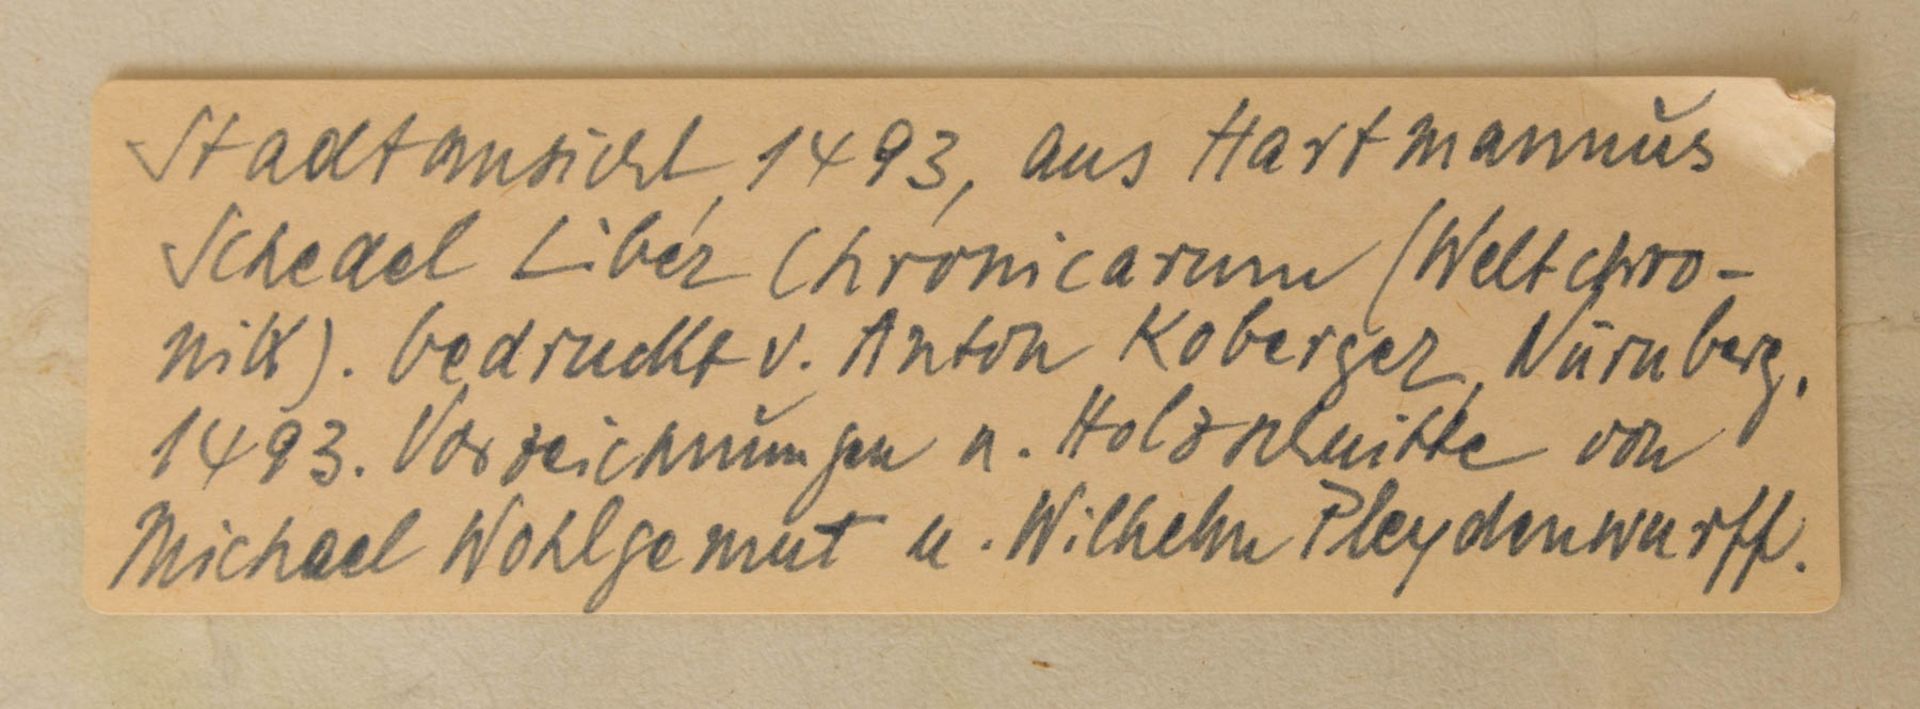 Stadtansicht, 1493, aus Hartmannus
Schedel Liber Chronicarum (Weltchro-
nik). Gedruckt v. Anton Koberger, Nürnberg,
1493. Vorzeichnungen u. Holzschnitte von
Michael Wohlgemut u. Wilhelm Pleydenwurff.